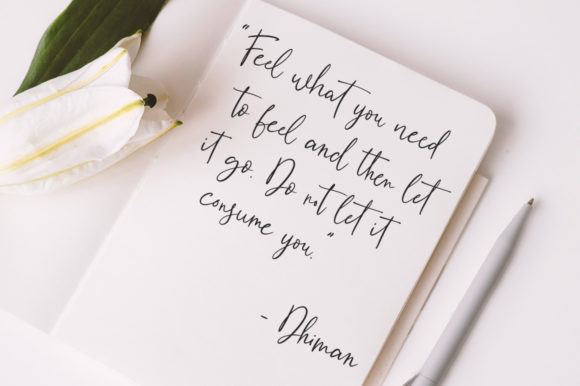 "Feel what you need
to feel and then let
it go. Do not let it
consume you."
- Dhiman